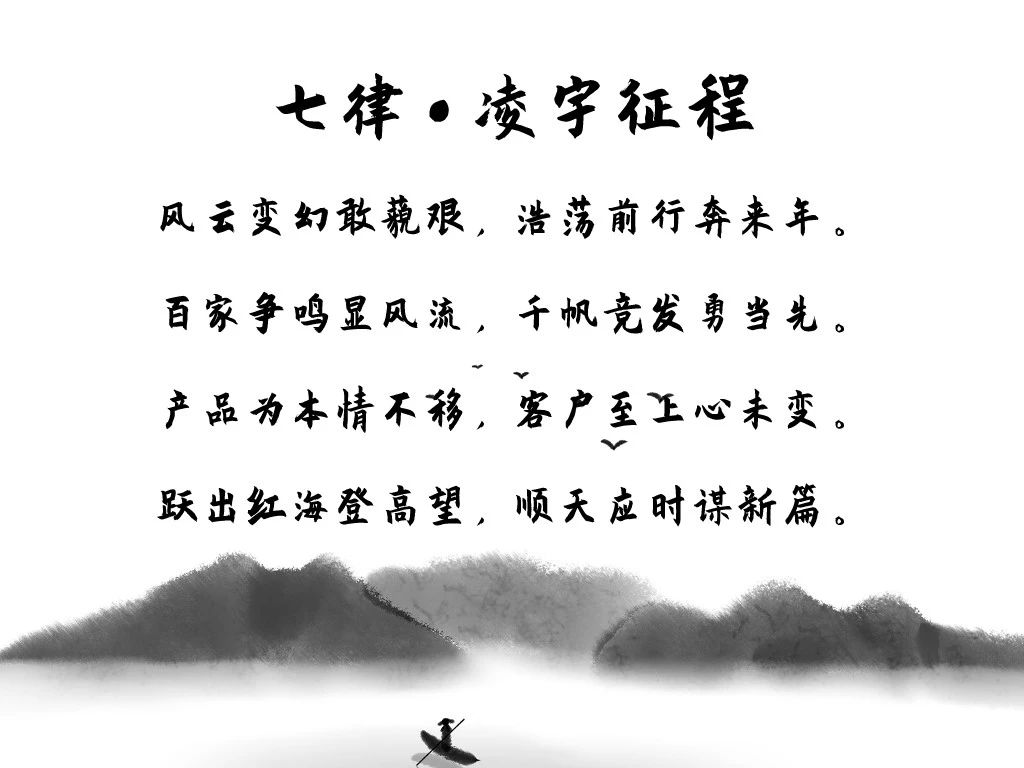 七律·凌宇征程
风云变幻敢藐艰，浩荡前行奔来年。
百家争鸣显风流，千帆竞发勇当先。
产品为本情不移，客户至上心未变。
跃出红海登高望，顺天应时谋新篇。